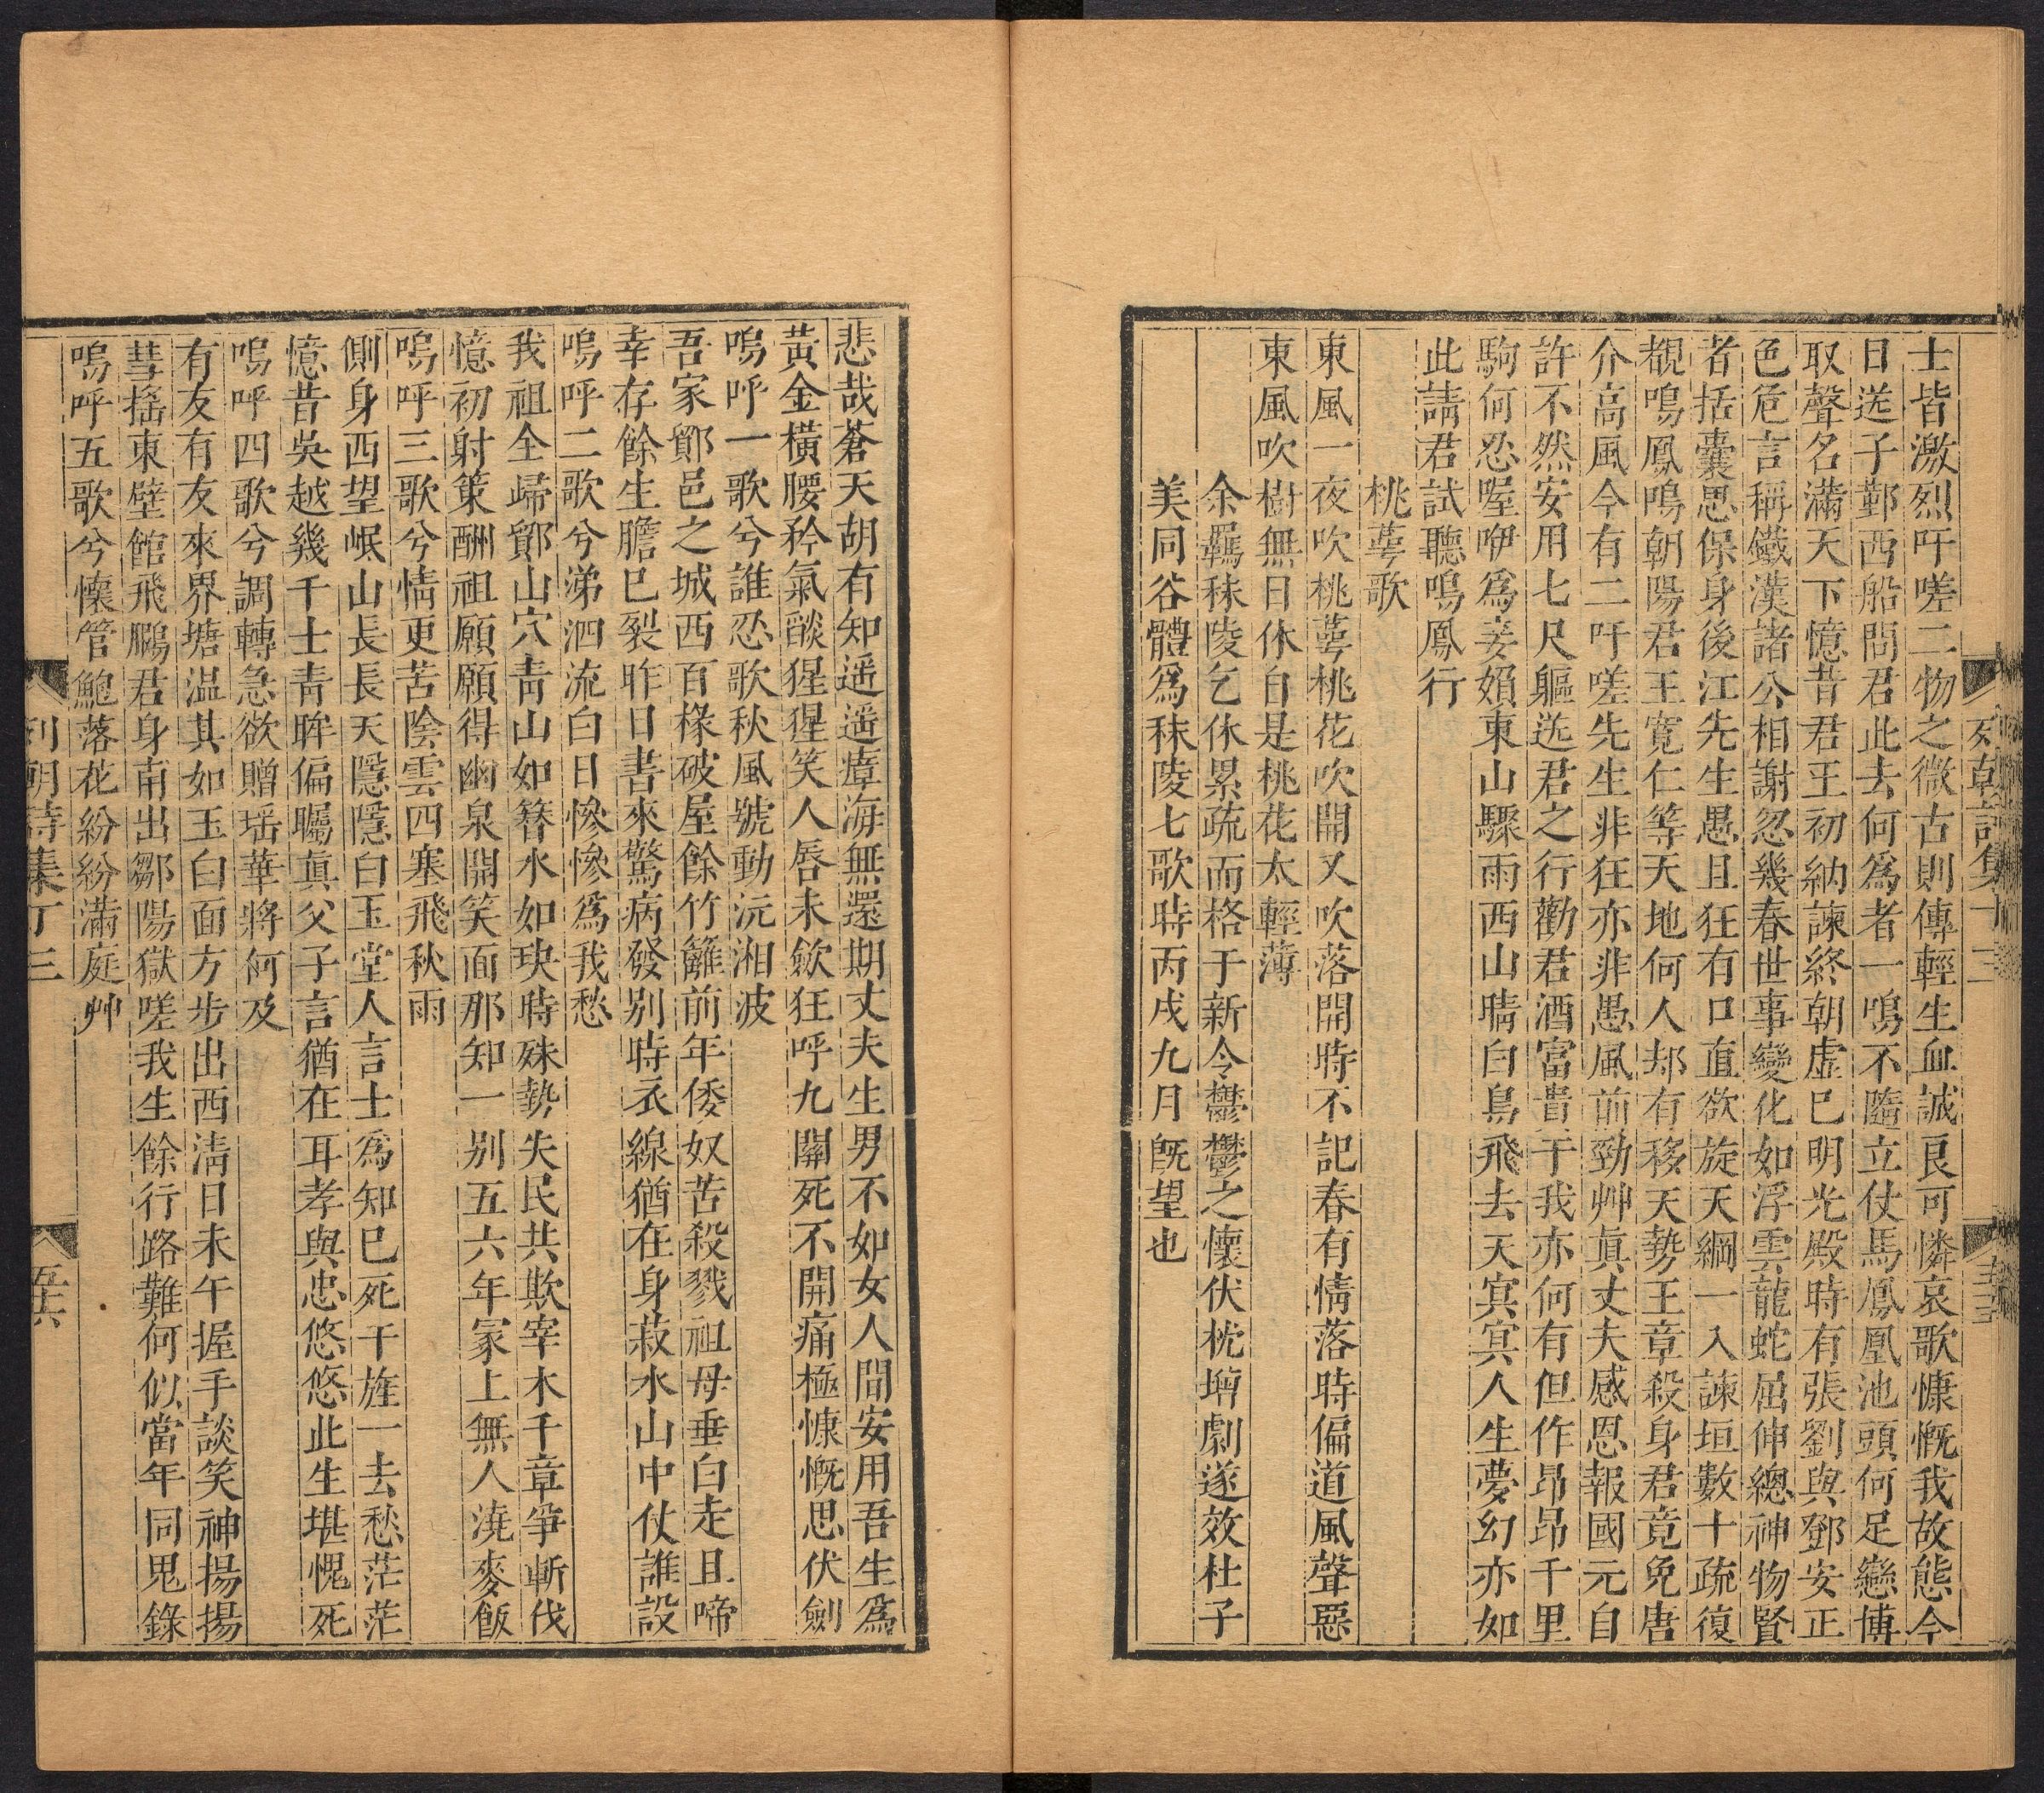 士皆激烈吁嗟二物之微古則傳輕生血誠良可憐哀歌慷慨我故態今
日送子鄞西船問君此去何爲者一鳴不隨立仗馬鳳凰池頭何足戀博
取聲名滿天下憶昔君王初納諫終朝虛已明光殿時有張劉與鄧安正
色危言稱鐵漢諸公相謝忽幾春世事變化如浮雲龍蛇屈伸總神物賢
者括囊思保身後江先生愚且狂有口直欲旋天綱一入諫垣數十疏復
覩鳴鳳鳴朝陽君王寛仁等天地何人却有移天勢王章殺身君竟免唐
介高風今有二吁嗟先生非狂亦非愚風前勁艸眞丈夫感恩報國元自
許不然安用七尺軀送君之行勸君酒富貴于我亦何有但作昂昂千里
駒何忍喔咿爲妾媍東山驟雨西山晴白鳥飛去天㝠㝠人生夢幻亦如
此請君試聽鳴鳳行
桃蕚歌
東風一夜吹桃蕚桃花吹開又吹落開時不記春有情落時偏道風聲惡
東風吹樹無日休自是桃花太輕薄
余羈秣陵乞休累疏而格于新令鬱鬱之懷伏枕增劇遂效杜子
美同谷體爲秣陵七歌時丙戌九月旣望也
悲哉蒼天胡有知遥遥瘴海無還期丈夫生男不如女人間安用吾生爲
黃金橫腰矜氣燄猩猩笑人唇未斂狂呼九關死不開痛極慷慨思伏劍
嗚呼一歌兮誰忍歌秋風號動沅湘波
吾家鄮邑之城西百椽破屋餘竹籬前年倭奴苦殺戮祖母垂白走且啼
幸存餘生膽已裂昨日書來驚病發别時衣線猶在身菽水山中仗誰設
嗚呼二歌兮涕泗流白日慘慘爲我愁
我祖全歸鄮山穴靑山如簪水如玦時殊勢失民共欺宰木千章爭斬伐
憶初射策酬祖願願得幽泉開笑面那知一别五六年冢上無人澆麥飯
嗚呼三歌兮情更苦陰雲四塞飛秋雨
側身西望岷山長長天隱隱白玉堂人言士爲知已死干旌一去愁茫茫
憶昔吳越幾千士靑眸偏矚眞父子言猶在耳孝與忠悠悠此生堪愧死
嗚呼四歌兮調轉急欲贈瑶華將何及
有友有友來界塘温其如玉白面方步出西淸日未午握手談笑神揚揚
彗搖東壁館飛鵩君身甫出鄒陽獄嗟我生餘行路難何似當年同鬼錄
嗚呼五歌兮懷管鮑落花紛紛滿庭艸
列朝詩集丁三